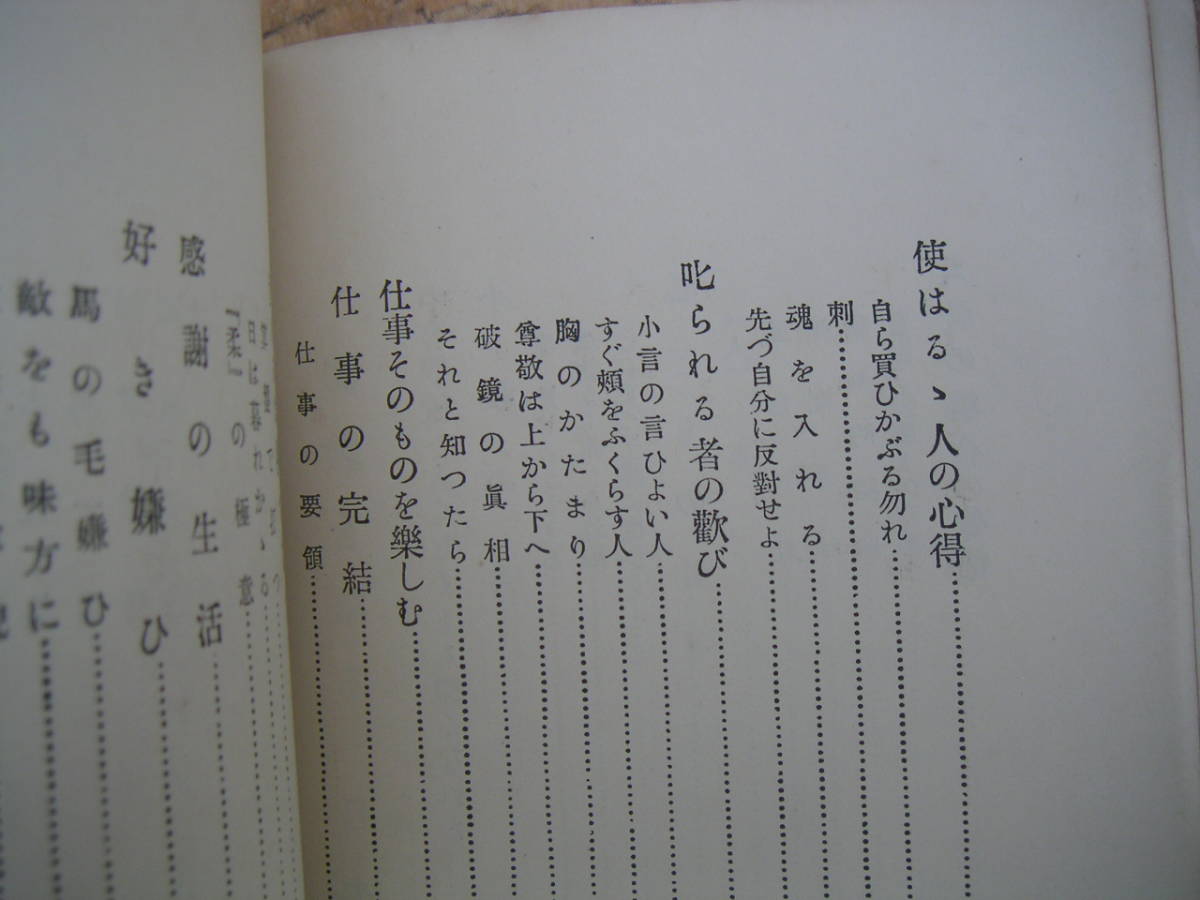 使はるゝ人の心得
自ら買ひかぶる勿れ
刺
魂を入れる
先づ自分に反對せよ
叱られる者の歡び
小言の言ひよい人
すぐ頰をふくらす人
胸のかたまり
尊敬は上から下へ
破鏡の眞相
それと知つたら
仕事そのものを樂しむ
仕事の完結
仕事の要領
日は暮れかゝる
『柔』の極意
感謝の生活
好き嫌ひ
馬の毛嫌ひ
敵をも味方に